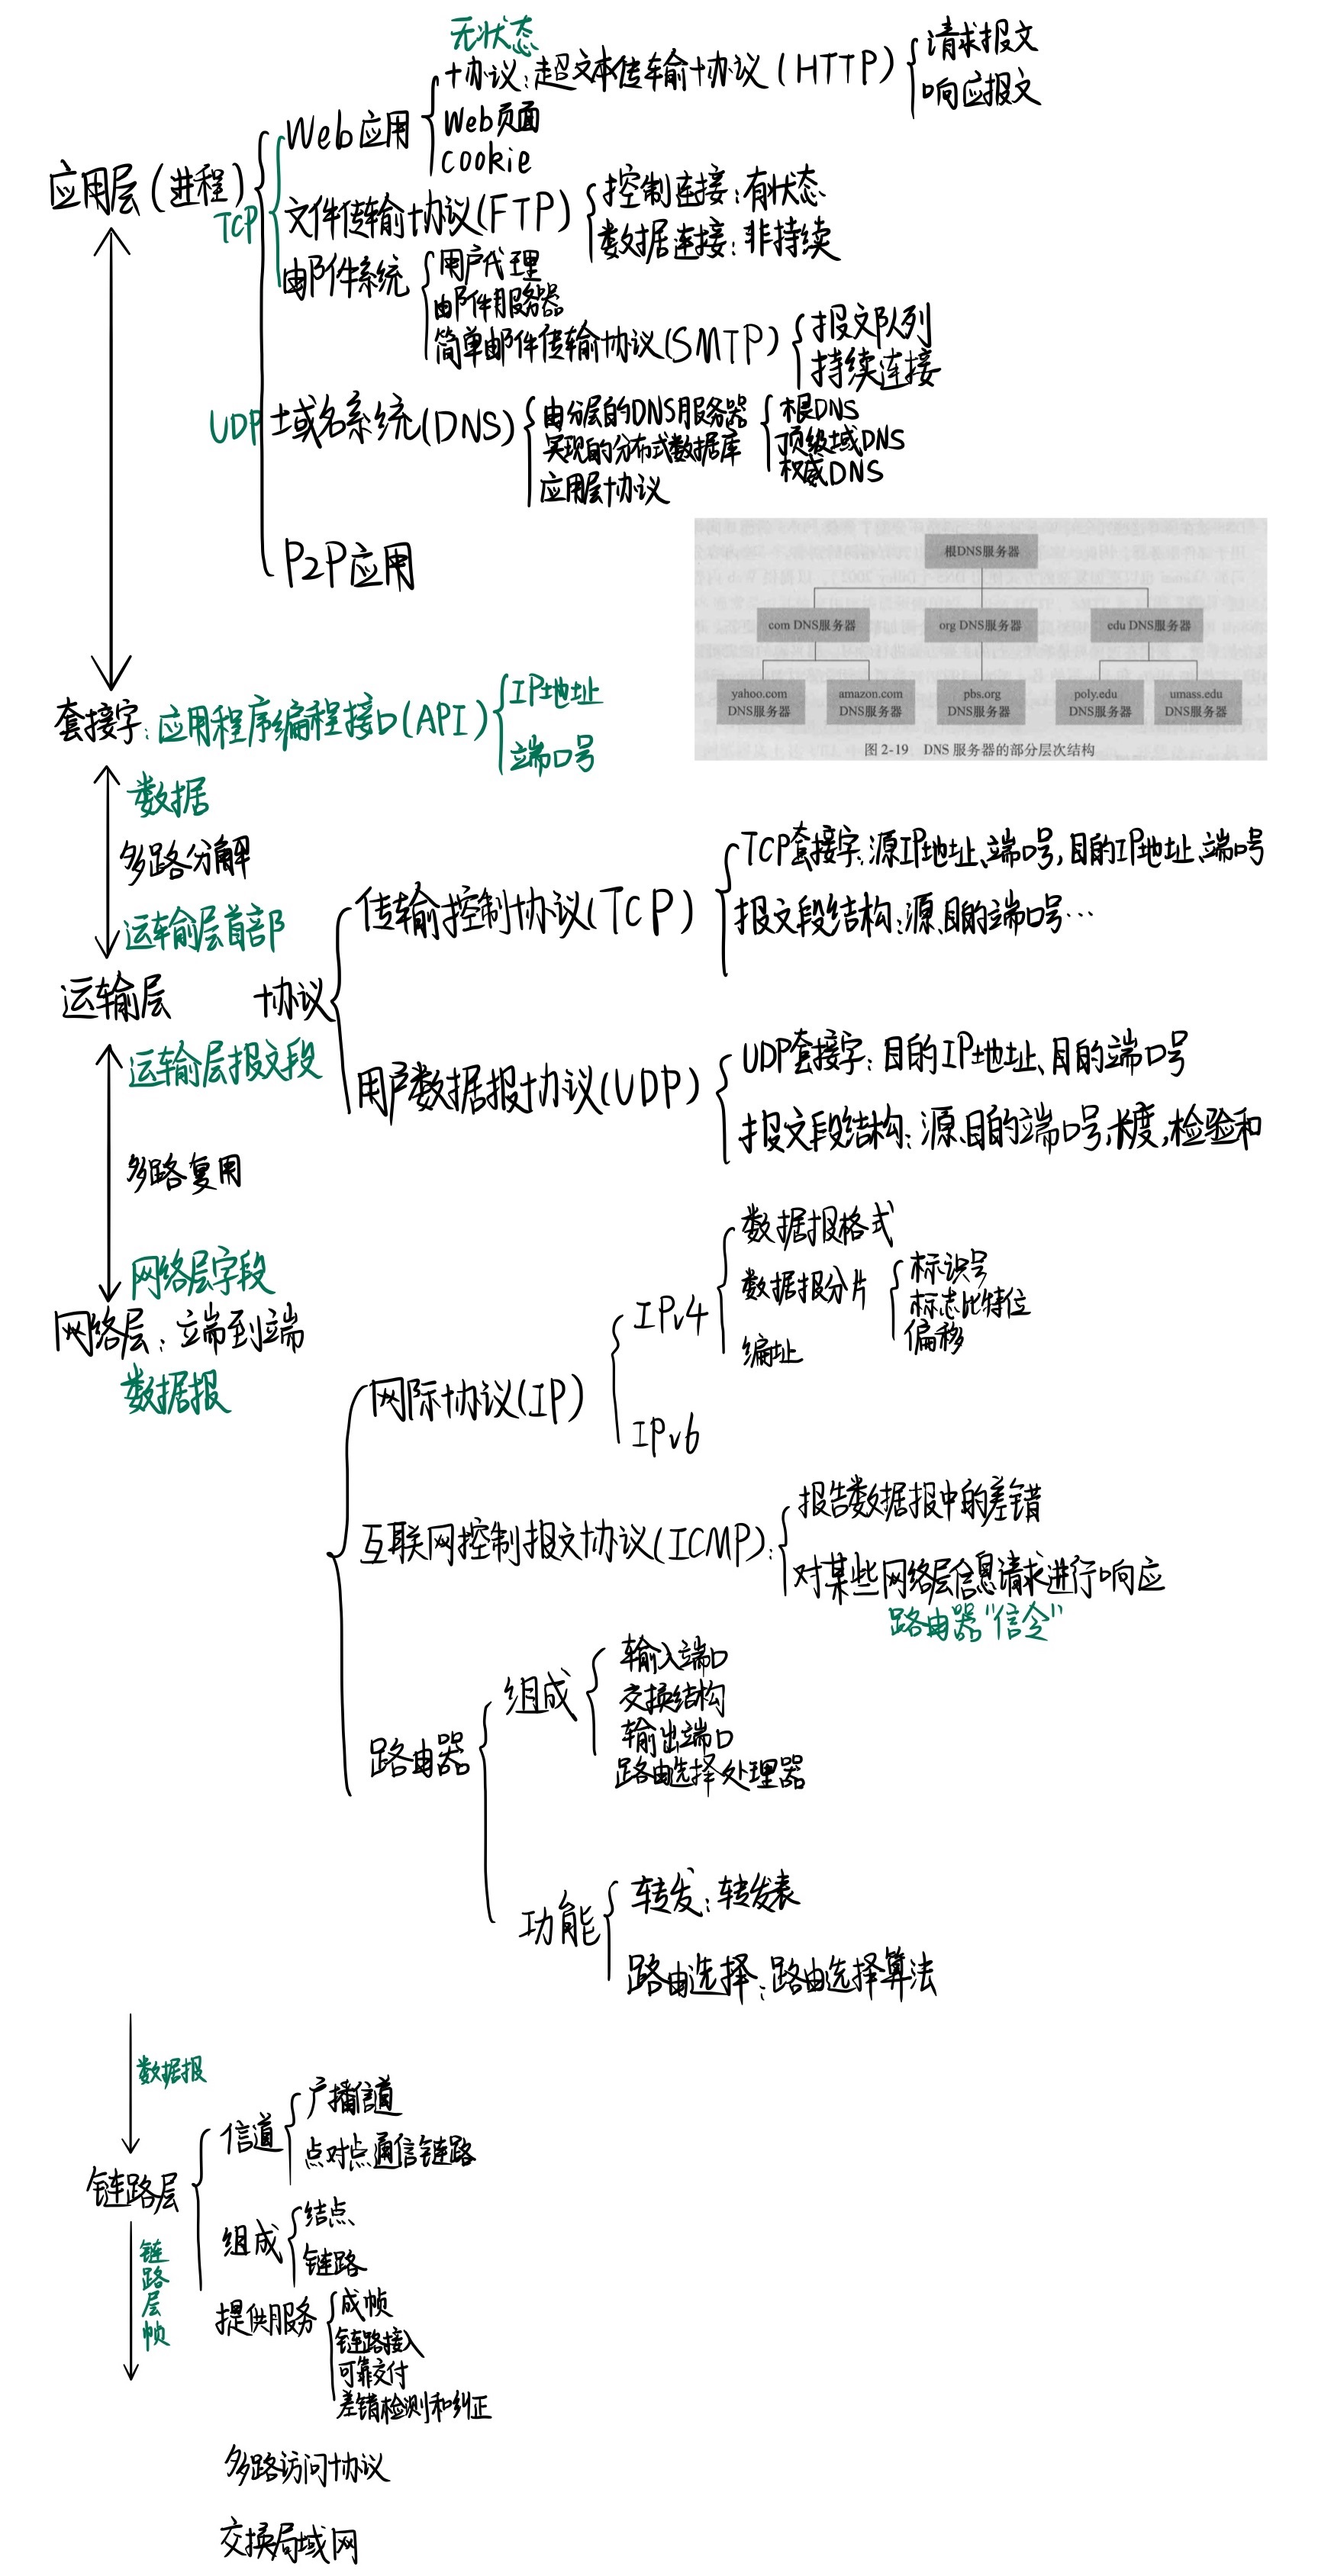 无状态
协议:超文本传输协议(HTTP)
请求报文
响应报文
Web应用
Web页面
cookie
应用层(进程)
TCP
文件传输协议(FTP)
控制连接:有状态
数据连接:非持续
邮件系统
用户代理
邮件服务器
简单邮件传输协议(SMTP)
报文队列
持续连接
UDP
域名系统(DNS)
由分层的DNS服务器
实现的分布式数据库
根DNS
顶级域DNS
权威DNS
应用层协议
P2P应用
根DNS服务器
com DNS服务器
org DNS服务器
edu DNS服务器
yahoo.com
DNS服务器
amazon.com
DNS服务器
pbs.org
DNS服务器
poly.edu
DNS服务器
umass.edu
DNS服务器
图 2-19 DNS 服务器的部分层次结构
套接字:应用程序编程接口(API)
IP地址
端口号
数据
多路分解
运输层首部
运输层
协议
传输控制协议(TCP)
TCP套接字:源IP地址、端口号,目的IP地址、端口号
报文段结构:源、目的端口号…
运输层报文段
用户数据报协议(UDP)
UDP套接字:目的IP地址、目的端口号
报文段结构:源、目的端口号,长度,检验和
多路复用
网络层字段
网络层:端到端
数据报
网际协议(IP)
IPv4
数据报格式
数据报分片
标识号
标志比特位
偏移
编址
IPv6
互联网控制报文协议(ICMP):
报告数据报中的差错
对某些网络层信息请求进行响应
路由器“信令”
路由器
组成
输入端口
交换结构
输出端口
路由选择处理器
功能
转发:转发表
路由选择:路由选择算法
数据报
链路层
信道
广播信道
点对点通信链路
组成
结点
链路
链路层帧
提供服务
成帧
链路接入
可靠交付
差错检测和纠正
多路访问协议
交换局域网